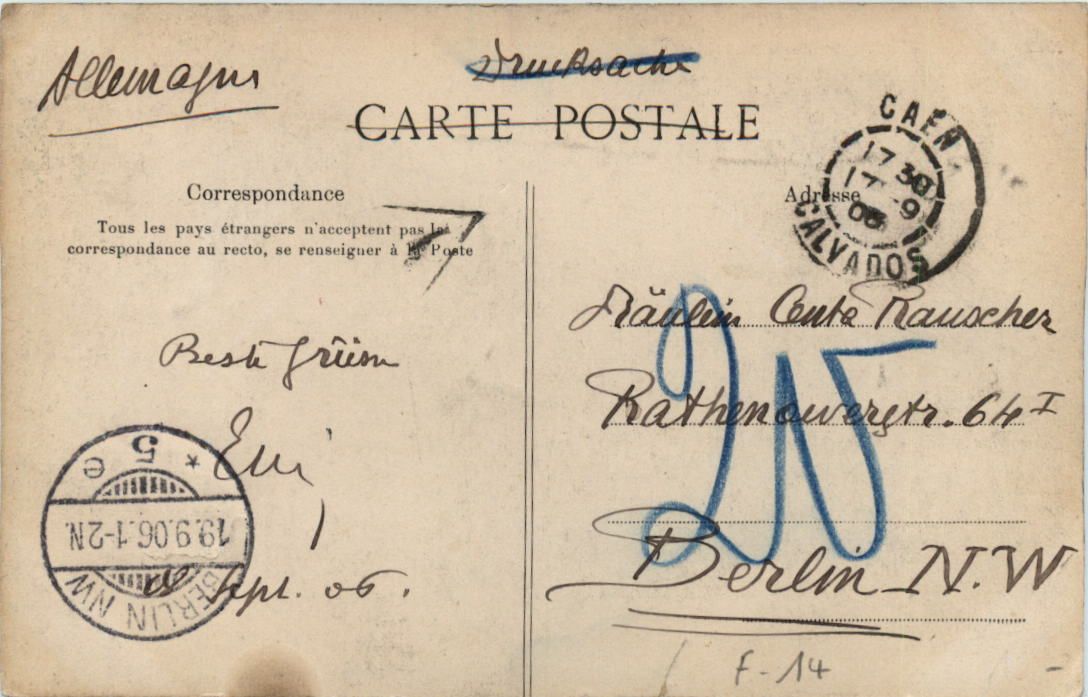 Allemagne
Drucksache
CARTE POSTALE
CAEN
17 30
17 -9
06
CALVADOS
Correspondance
Tous les pays étrangers n'acceptent pas la
correspondance au recto, se renseigner à la Poste
Adresse
Fräulein Centa Rauscher
Rathenowerstr. 64 I
Berlin N.W
Beste Grüsse
Sept. 06.
BERLIN NW
19.9.06.1-2N.
* 5 e
F-14